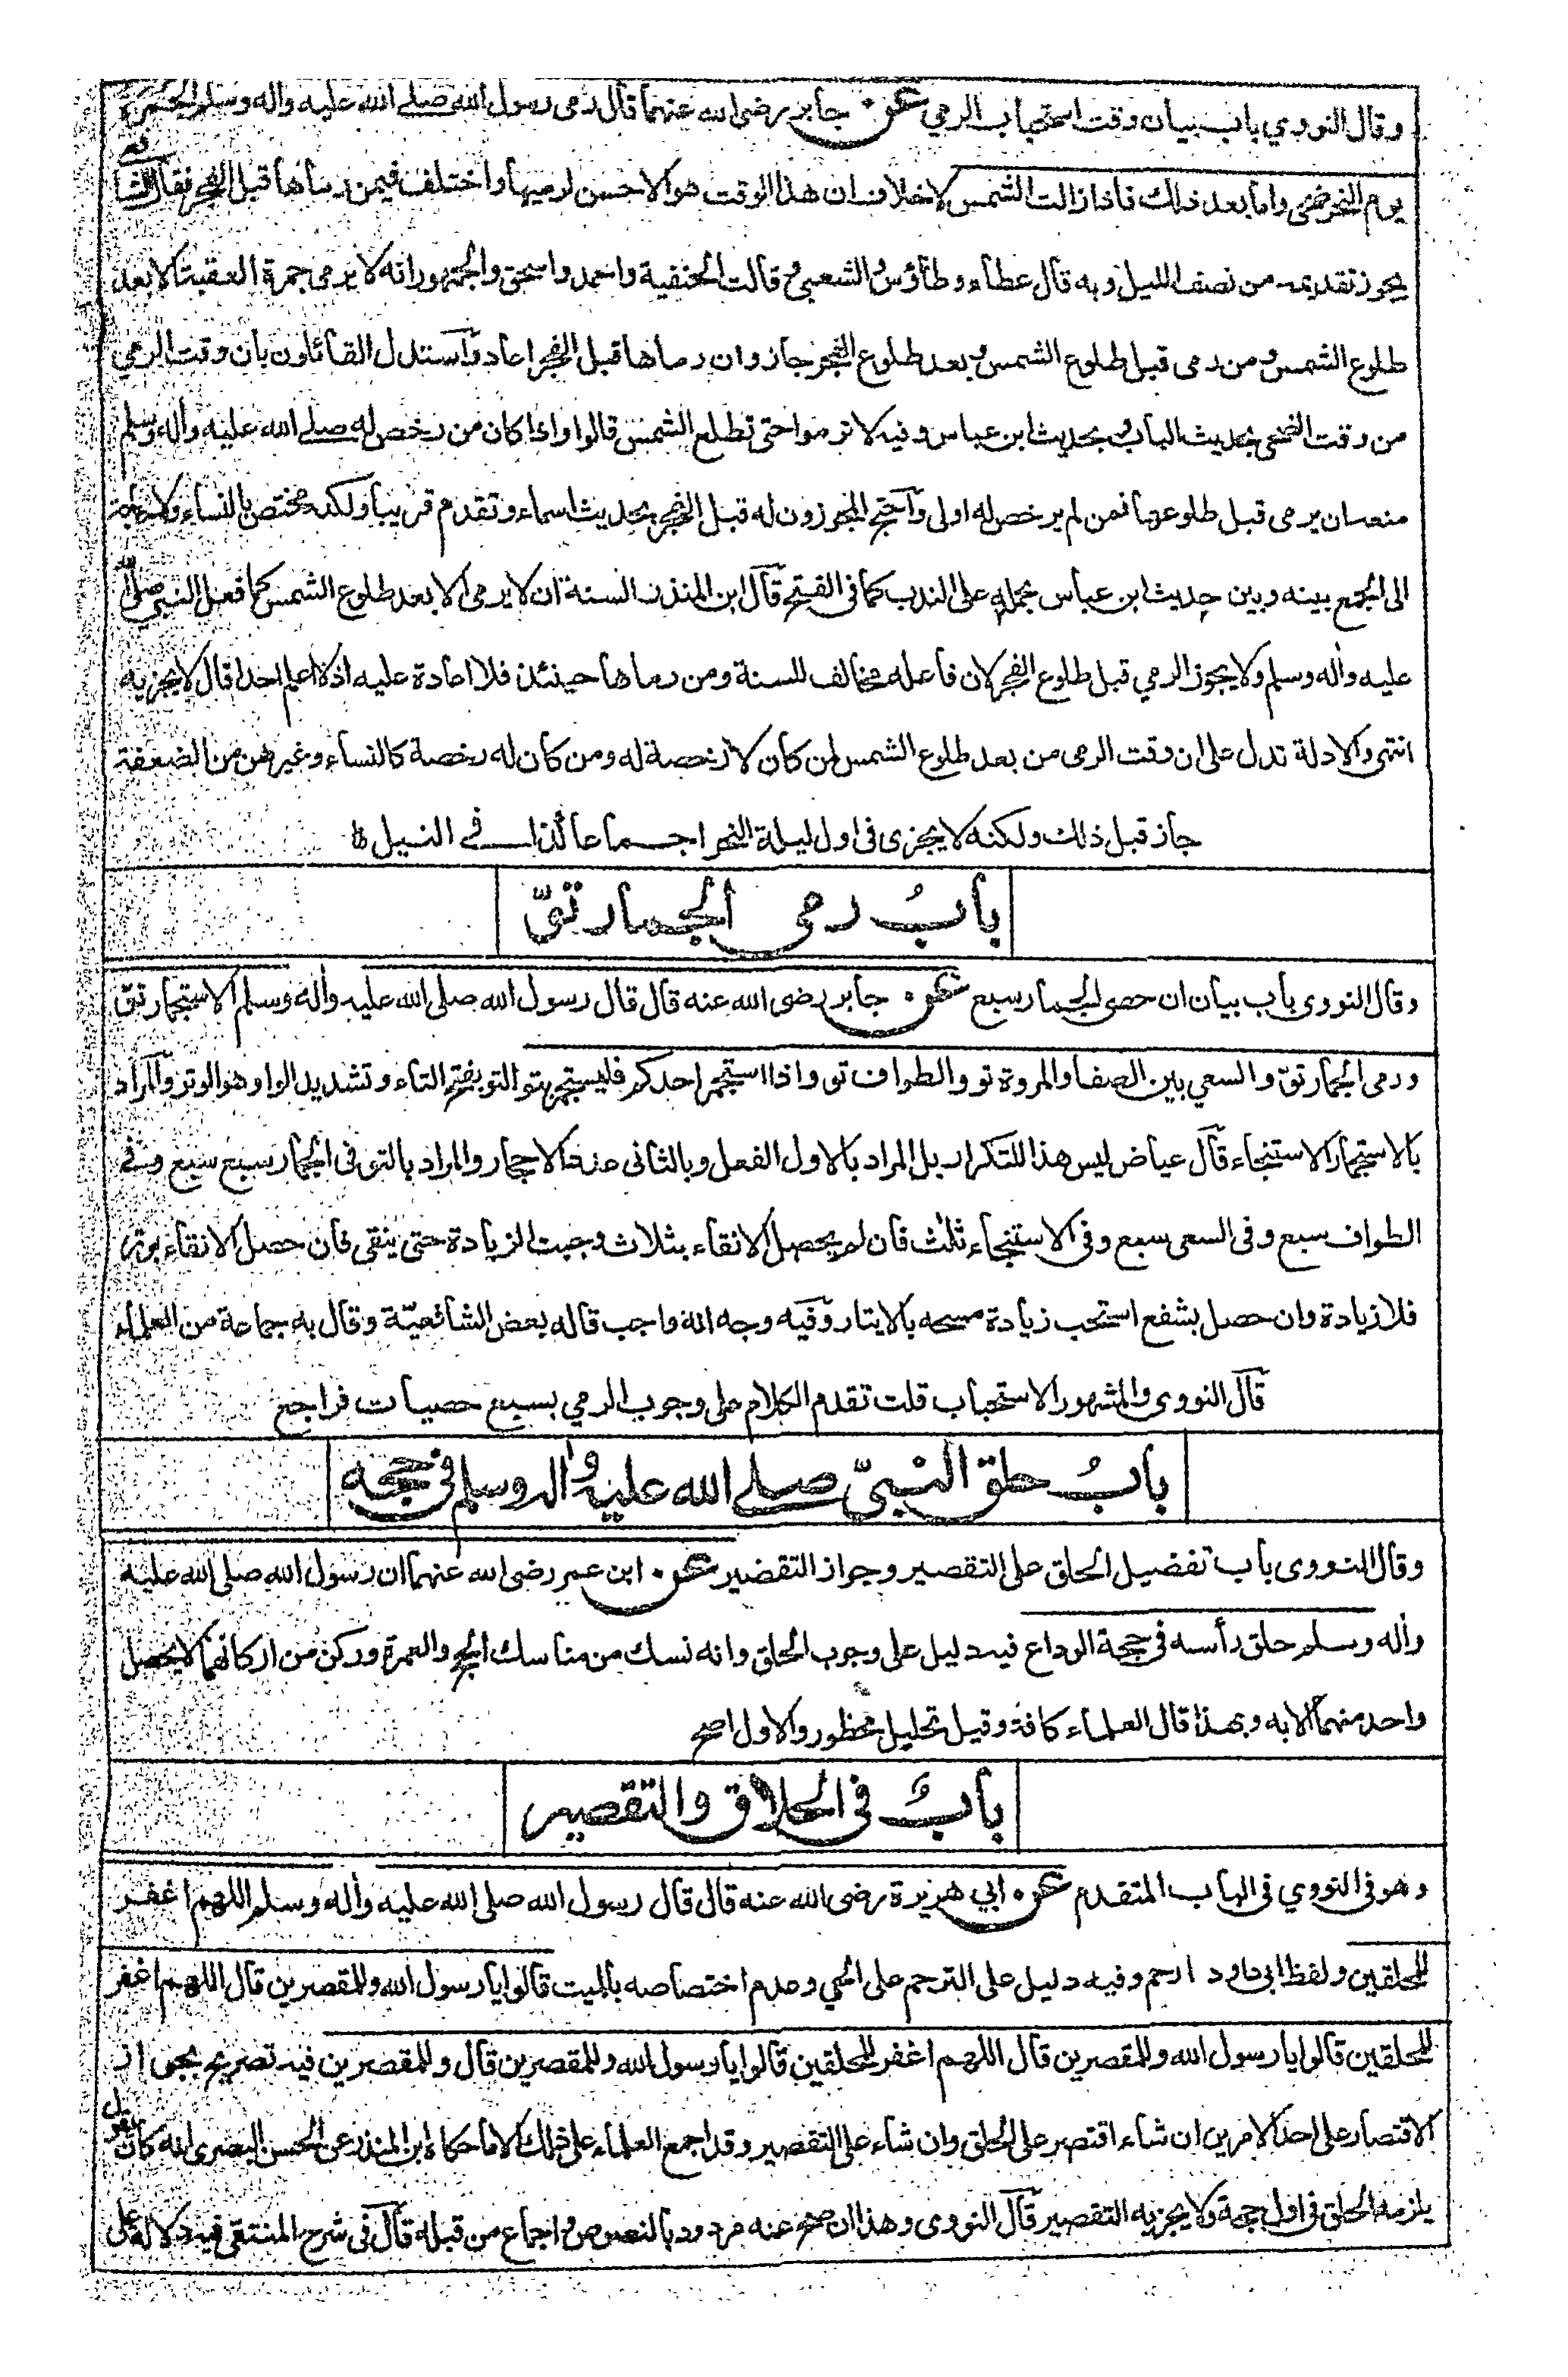 وقال النووي باب بيان وقت استحباب الرمي عن جابر رضي الله عنهما قال رمى رسول الله صلى الله عليه واله وسلم الجمرة
يوم النحر ضحى واما بعد ذلك فاذا زالت الشمس لاخلاف ان هذا الوقت هو الاحسن لرميها واختلف فيمن رماها قبل الفجر فقال الشافعي
يجوز تقديمه من نصف الليل وبه قال عطاء وطاؤس والشعبي وقالت الحنفية واحمد واسحق والجمهور انه لا يرمى جمرة العقبة الا بعد
طلوع الشمس ومن رمى قبل طلوع الشمس وبعد طلوع الفجر جاز وان رماها قبل الفجر اعاد واستدل القائلون بان وقت الرمي
من وقت الضحى بحديث الباب وبحديث ابن عباس وفيه لا ترموا حتى تطلع الشمس قالوا واذا كان من رخص له صلى الله عليه واله وسلم
منعه ان يرمى قبل طلوعها فمن لم يرخص له اولى واحتج المجوزون له قبل الفجر بحديث اسماء وتقدم قريبا ولكنه مختص بالنساء ولا حاجة
الى الجمع بينه وبين حديث ابن عباس بحمله على الندب كما فى الفتح قال ابن المنذر السنة ان لا يرمى الا بعد طلوع الشمس كما فعل النبي صلى الله
عليه واله وسلم ولا يجوز الرمي قبل طلوع الفجر لان فاعله مخالف للسنة ومن رماها حينئذ فلا اعادة عليه اذ لا اعلم احدا قال لا يجزيه
انتهى والادلة تدل على ان وقت الرمى من بعد طلوع الشمس لمن كان لا رخصة له ومن كان له رخصة كالنساء وغيرهن من الضعفة
جاز قبل ذلك ولكنه لا يجزى فى اول ليلة النحر اجماعا كذا فى النيل
بابُ رمى الجمار توّ
وقال النووى باب بيان ان حصى الجمار سبع عن جابر رضى الله عنه قال قال رسول الله صلى الله عليه واله وسلم الاستجمار توّ
ورمى الجمار توّ والسعي بين الصفا والمروة تو والطواف تو واذا استجمر احدكم فليستجمر بتو التو بفتح التاء وتشديد الواو هو الوتر والمراد
بالاستجمار الاستنجاء قال عياض ليس هذا للتكرار بل المراد بالاول الفعل وبالثانى عدد الاحجار والمراد بالتو فى الجمار سبع سبع وفى
الطواف سبع وفى السعى سبع وفى الاستنجاء ثلث فان لم يحصل الانقاء بثلاث وجبت الزيادة حتى ينقى فان حصل الانقاء بوتر
فلا زيادة وان حصل بشفع استحب زيادة مسحه بالايتار وفيه وجه انه واجب قاله بعض الشافعيّة وقال به جماعة من العلماء
قال النووى والمشهور الاستحباب قلت تقدم الكلام على وجوب الرمي بسبع حصيات فراجع
بابُ حلق النبيّ صلى الله عليه واله وسلم فى حجه
وقال النووى باب تفضيل الحلق على التقصير وجواز التقصير عن ابن عمر رضى الله عنهما ان رسول الله صلى الله عليه
واله وسلم حلق رأسه فى حجة الوداع فيه دليل على وجوب الحلق وانه نسك من مناسك الحج والعمرة وركن من اركانهما لا يحصل
واحد منهما الا به وبهذا قال العلماء كافة وقيل تحليل محظور والاول اصح
بابٌ فى الحلاق والتقصير
وهو فى النووي فى الباب المتقدم عن ابي هريرة رضى الله عنه قال قال رسول الله صلى الله عليه واله وسلم اللهم اغفر
للمحلقين ولفظ ابى داود ارحم وفيه دليل على الترحم على الحي وعدم اختصاصه بالميت قالوا يا رسول الله وللمقصرين قال اللهم اغفر
للمحلقين قالوا يا رسول الله وللمقصرين قال اللهم اغفر للمحلقين قالوا يا رسول الله وللمقصرين قال وللمقصرين فيه تصريح بجواز
الاقتصار على احد الامرين ان شاء اقتصر على الحلق وان شاء على التقصير وقد اجمع العلماء على ذلك الا ما حكاه ابن المنذر عن الحسن البصرى انه كان يقول
يلزمه الحلق فى اول حجة ولا يجزيه التقصير قال النووى وهذا ان صح عنه مردود بالنصوص واجماع من قبله قال فى شرح المنتقى فيه دلالة على